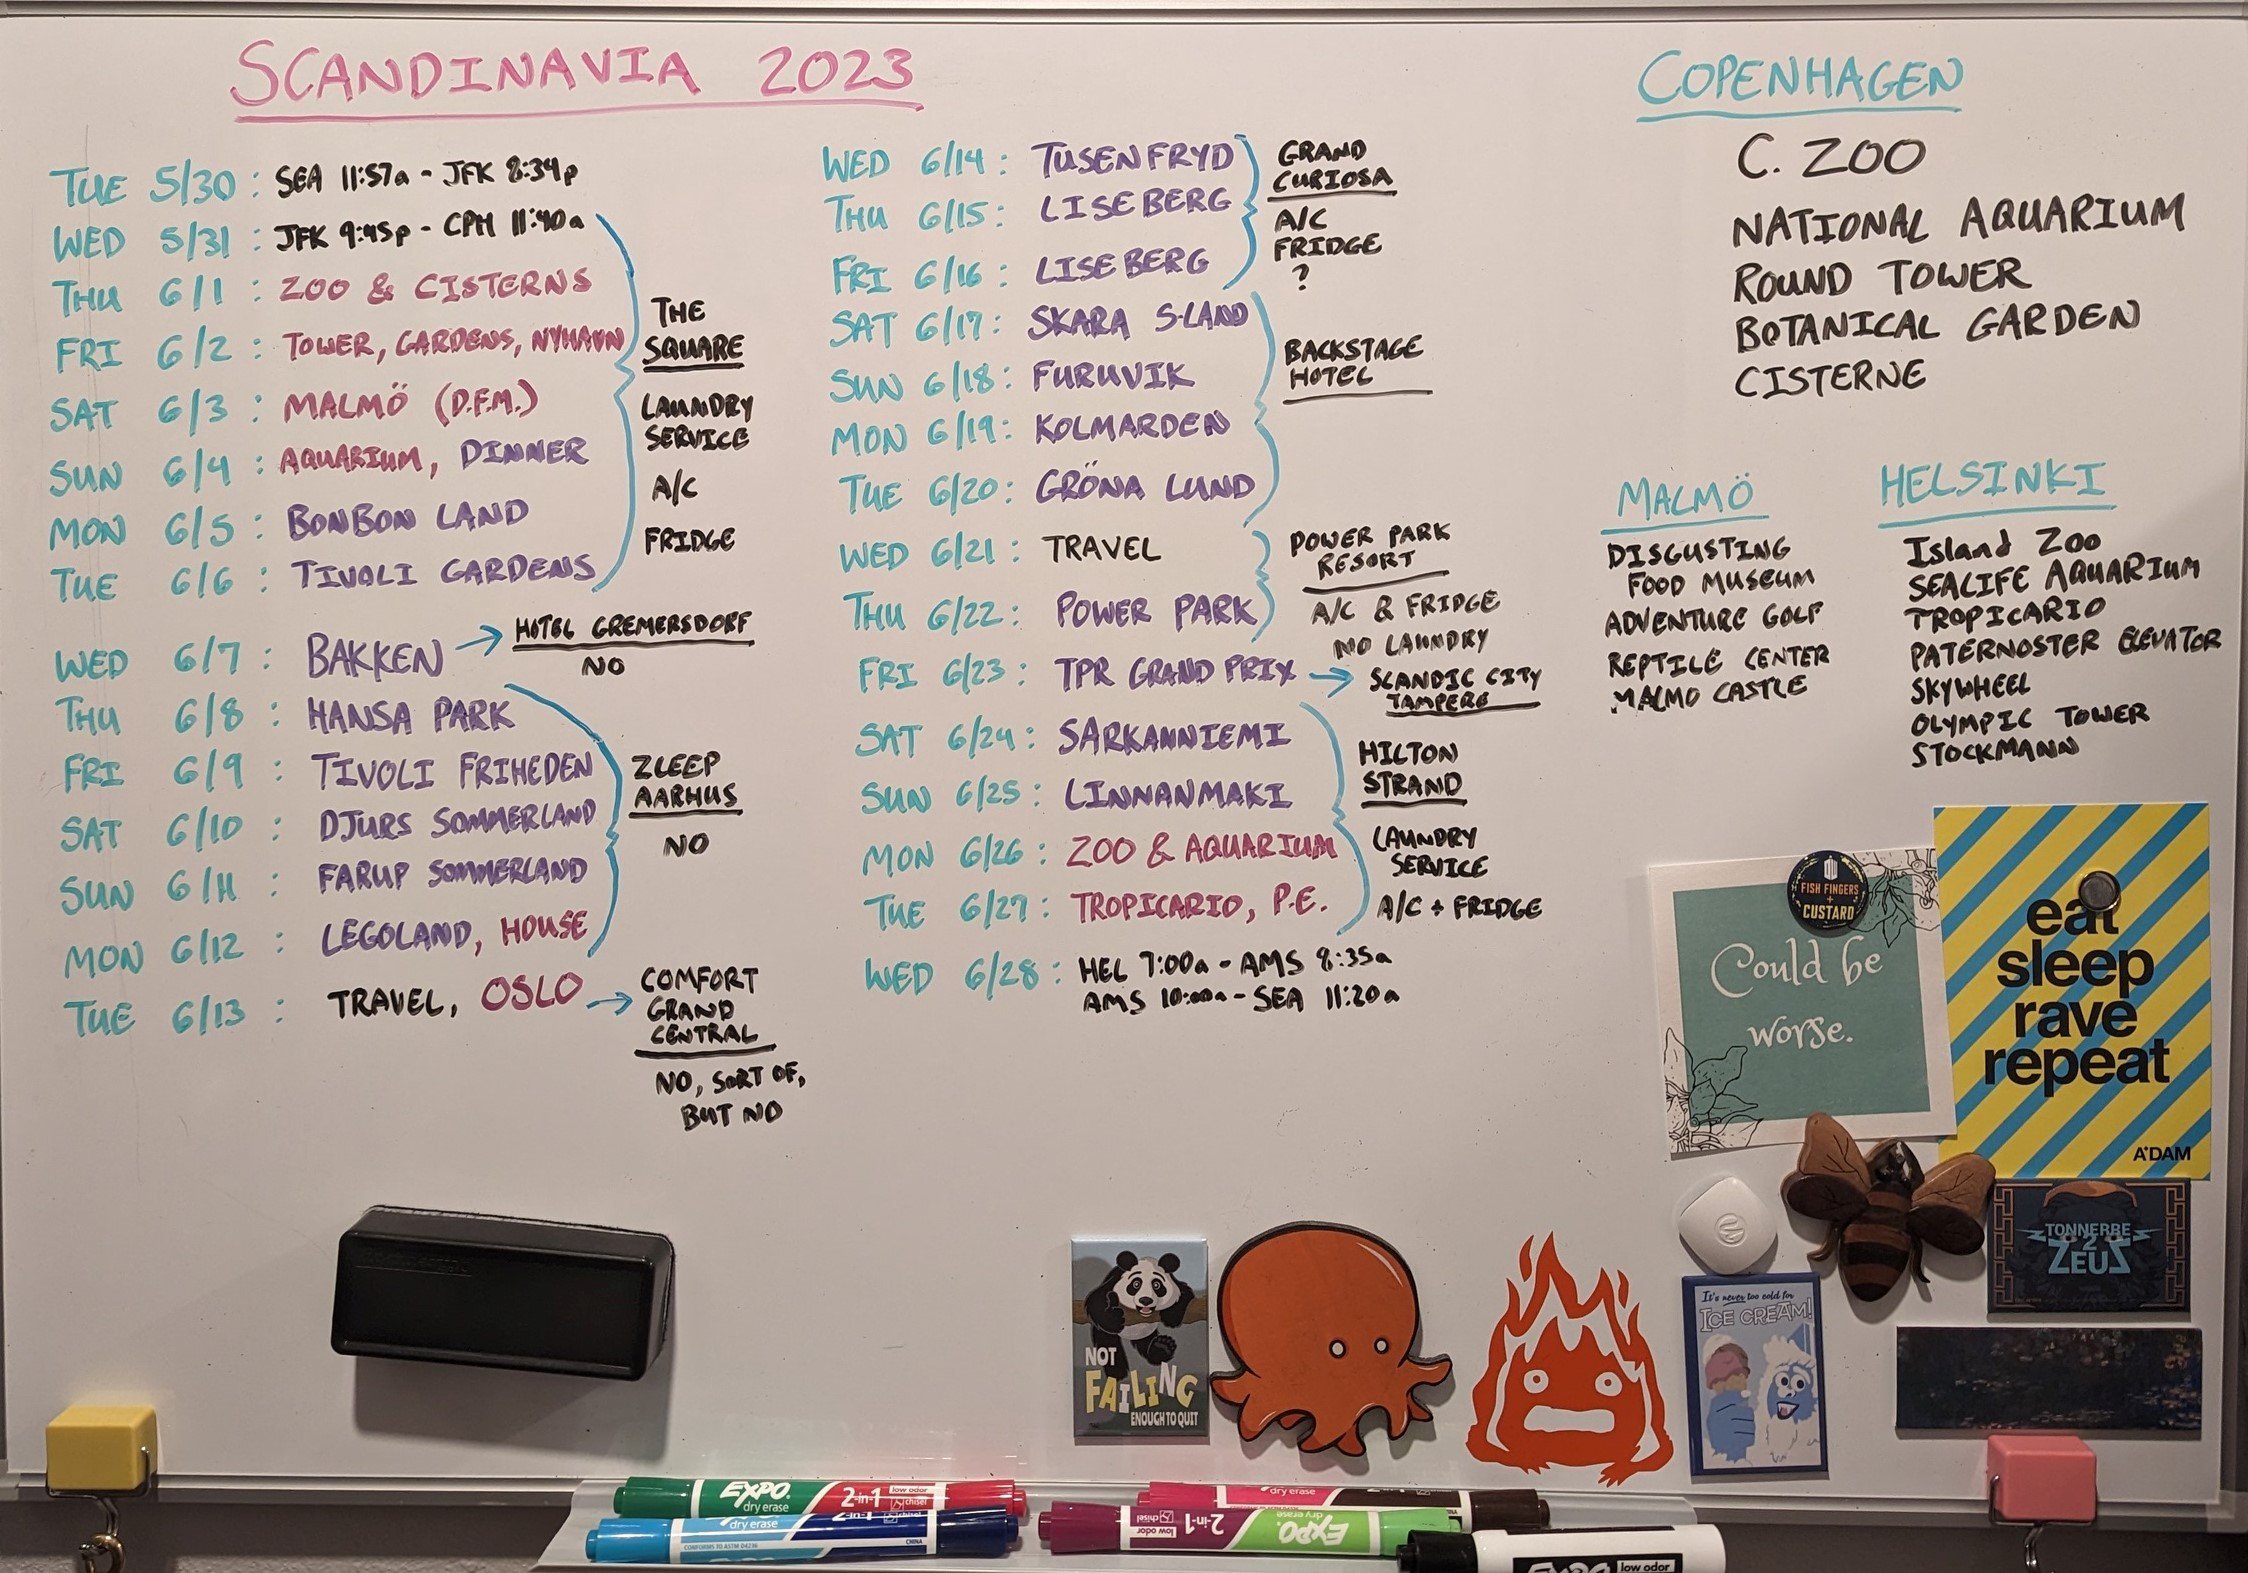 SCANDINAVIA 2023
TUE 5/30: SEA 11:57a - JFK 8:34p
WED 5/31: JFK 9:45p - CPH 11:40a
THU 6/1: ZOO & CISTERNS
FRI 6/2: TOWER, GARDENS, NYHAVN
SAT 6/3: MALMÖ (D.F.M.)
SUN 6/4: AQUARIUM, DINNER
MON 6/5: BONBON LAND
TUE 6/6: TIVOLI GARDENS
THE
SQUARE
LAUNDRY
SERVICE
A/C
FRIDGE
WED 6/7: BAKKEN → HOTEL GREMERSDORF
NO
THU 6/8: HANSA PARK
FRI 6/9: TIVOLI FRIHEDEN
SAT 6/10: DJURS SOMMERLAND
SUN 6/11: FARUP SOMMERLAND
MON 6/12: LEGOLAND, HOUSE
ZLEEP
AARHUS
NO
TUE 6/13: TRAVEL, OSLO → COMFORT
GRAND
CENTRAL
NO, SORT OF,
BUT NO
WED 6/14: TUSENFRYD
THU 6/15: LISEBERG
FRI 6/16: LISEBERG
GRAND
CURIOSA
A/C
FRIDGE
?
SAT 6/17: SKARA S-LAND
SUN 6/18: FURUVIK
MON 6/19: KOLMARDEN
TUE 6/20: GRÖNA LUND
BACKSTAGE
HOTEL
WED 6/21: TRAVEL
THU 6/22: POWER PARK
POWER PARK
RESORT
A/C & FRIDGE
NO LAUNDRY
FRI 6/23: TPR GRAND PRIX → SCANDIC CITY
TAMPERE
SAT 6/24: SARKANNIEMI
SUN 6/25: LINNANMAKI
MON 6/26: ZOO & AQUARIUM
TUE 6/27: TROPICARIO, P.E.
HILTON
STRAND
LAUNDRY
SERVICE
A/C + FRIDGE
WED 6/28: HEL 7:00a - AMS 8:35a
AMS 10:00a - SEA 11:20a
COPENHAGEN
C. ZOO
NATIONAL AQUARIUM
ROUND TOWER
BOTANICAL GARDEN
CISTERNE
MALMÖ
DISGUSTING
FOOD MUSEUM
ADVENTURE GOLF
REPTILE CENTER
MALMO CASTLE
HELSINKI
Island Zoo
SEALIFE AQUARIUM
TROPICARIO
PATERNOSTER ELEVATOR
SKYWHEEL
OLYMPIC TOWER
STOCKMANN
FISH FINGERS
+
CUSTARD
Could be
worse.
eat
sleep
rave
repeat
A'DAM
TONNERRE
2
ZEUS
It's never too cold for
ICE CREAM!
NOT
FAILING
ENOUGH TO QUIT
EXPO
dry erase
2-in-1
low odor
chisel
dry erase
CONFORMS TO ASTM D4236
2-in-1
CHINA
chisel
low odor
2-in-1
EXPO
dry erase
EXPO
low odor